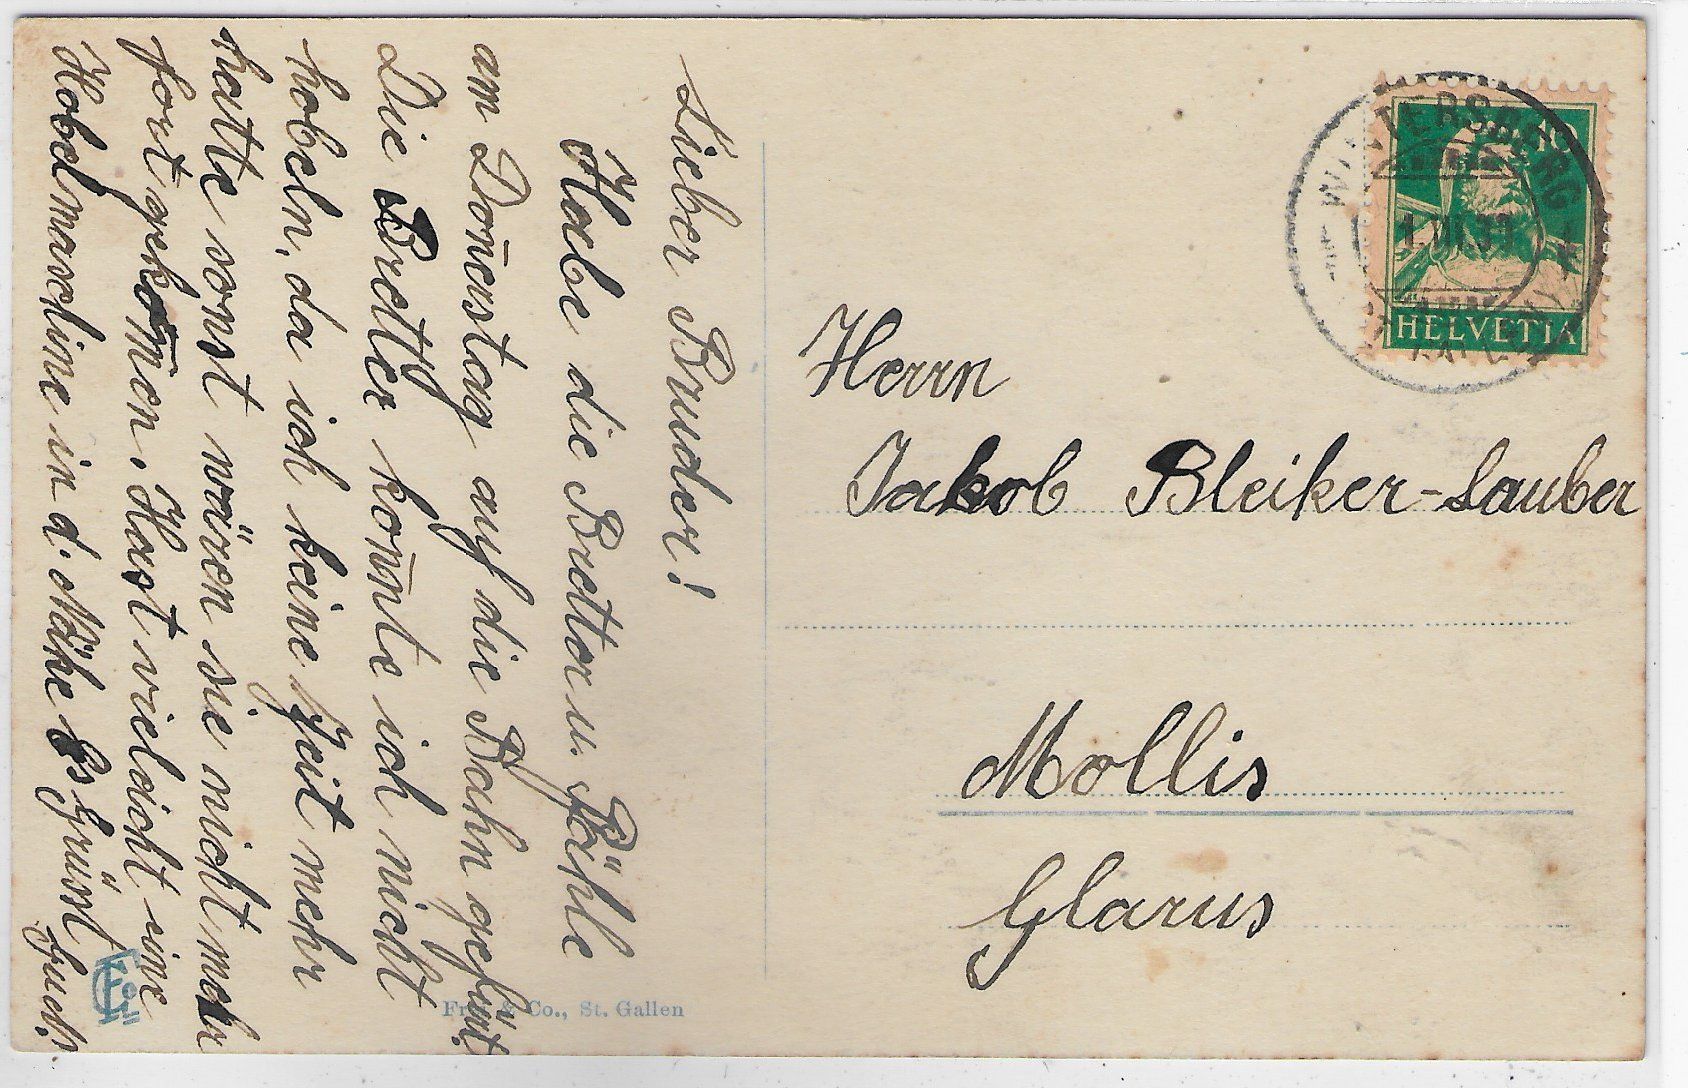 Lieber Bruder!
Habe die Bretter u. Pfähle
am Don̄erstag auf die Bahn gefürt
Die Bretter kon̄te ich nicht
hobeln, da ich keine Zeit mehr
hatte sonst wären sie nicht mehr
fort gekom̄en. Hast vielicht eine
Hobelmaschine in d. Nähe Es grüsst
Herrn
Jakob Bleiker-Lauber
Mollis
Glarus
10
HELVETIA
WINTERSBERG
& Co., St. Gallen